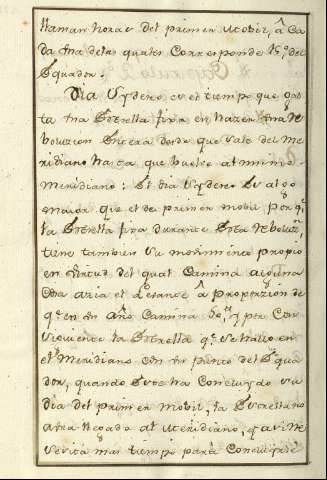 llaman horas del primer Mobil, â Ca
da Una delas quales Corresponde 15,, g.s del
Equador.
Dia Sydereo es el tiempo que gas
ta Una Estrella fixa en hazer Una Re
bolucion Entera desde que sale del Me
ridiano hasta que buelve al mismo
Meridiano: El dia Sydereo Es algo
maior que el de primer mobil, porq.e
la Estrella fixa durante Esta Reboluz.n
tiene tambien Su movimiento propio
en Virtud del qual Camina alguna
Cosa azia el Levante â proporzion de
q.e en Un Año Camina 50,, y por Con
siguiente la Estrella q.e se hallo en
el Meridiano con Un punto del Equa
dor, quando Este ha Concluydo su
dia del primer Mobil, la Estrella no
abra llegado al Meridiano, y assi Ne
cesita mas tiempo para Concluyr el